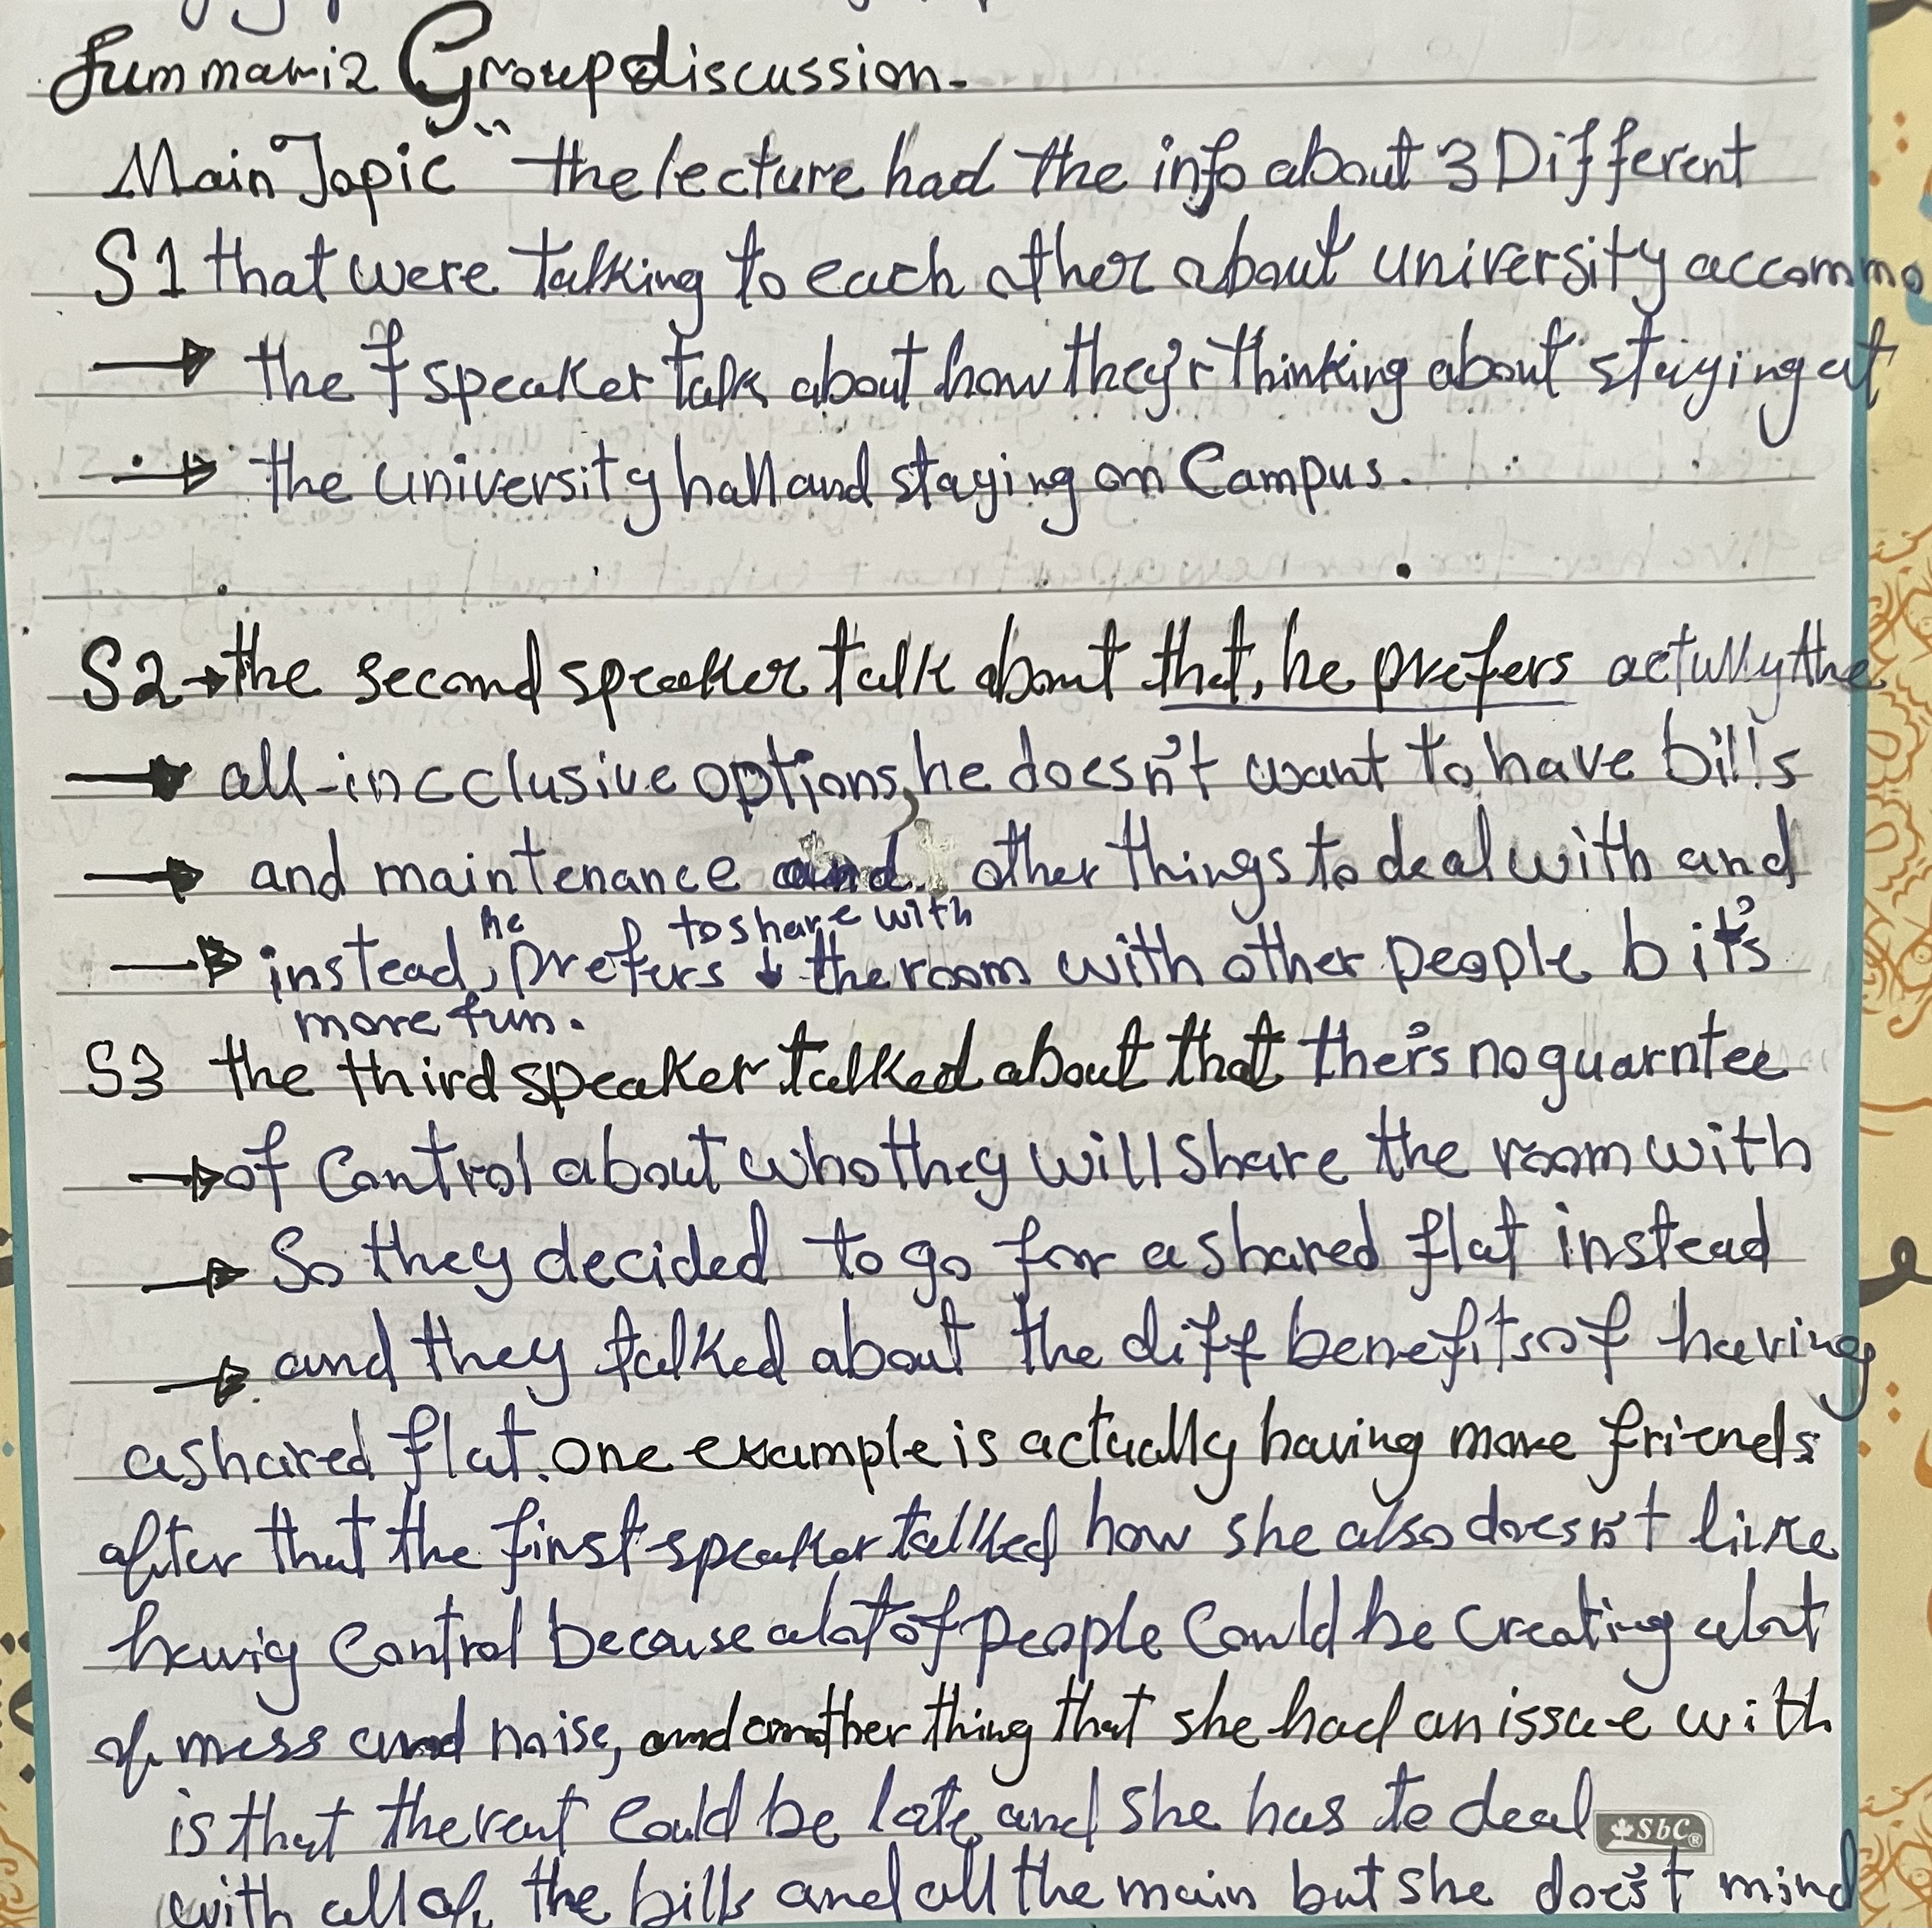 Summariz Group discussion.
Main Topic" the lecture had the info about 3 Different
S1 that were talking to each other about university accommo
→ the f speaker talk about how they'r thinking about staying at
→ the university hall and staying on Campus.
S2→ the second speaker talk about that, he prefers actully the
→ all-incclusive options, he doesn't want to have bills
→ and maintenance and other things to deal with and
he to share with
→ instead, prefers ↓ the room with other people b it's
more fun.
S3 the third speaker talked about that ther's no guarntee
→ of Control about who they will share the room with
→ So they decided to go for a shared flat instead
→ and they talked about the diff benefits of having
a shared flat. one example is actually having more friends
after that the first speaker talked how she also doesn't like
havig Control because alot of people Could be Creating alot
of mess and noise, and another thing that she had an issue with
is that the rent Could be late and she has to deal
SbC®
with all of the bills and all the main but she does't mind